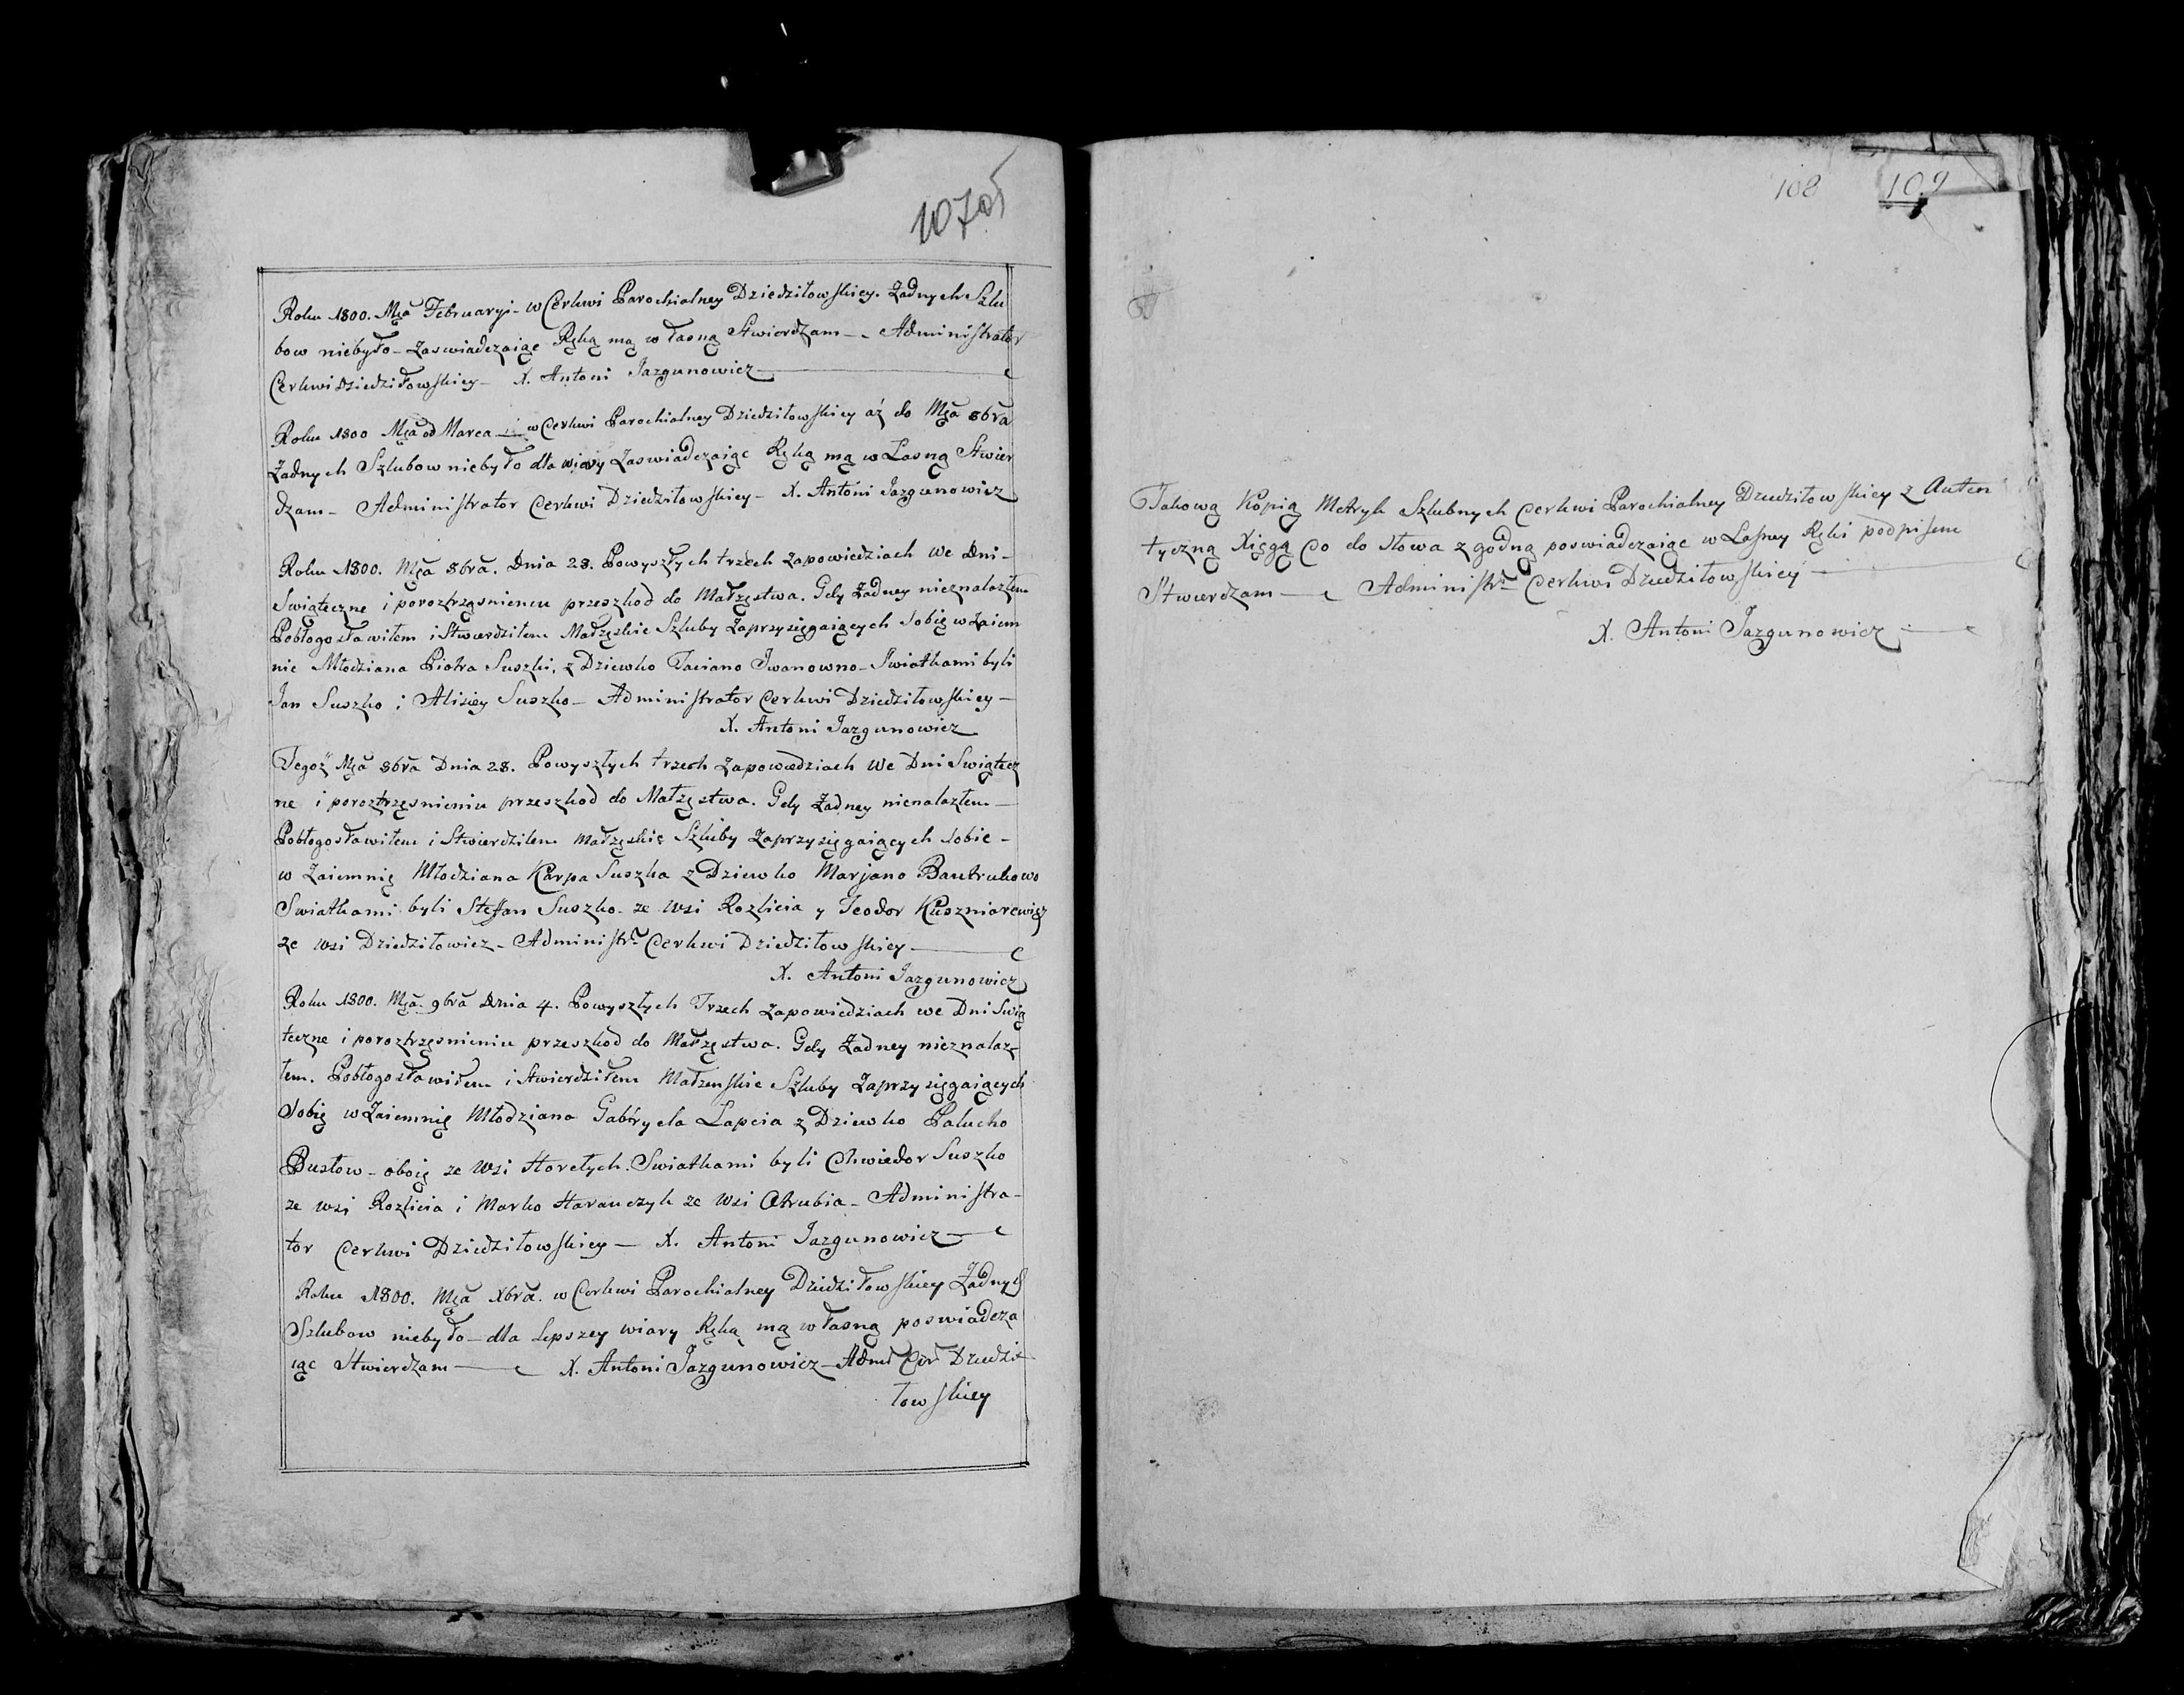 107об
Roku 1800. Mca Februaryi - w Cerkwi Parochialney Dziedziłowskiey. Żadnych Szlu
bow niebyło - Zaswiadczaiąc Ręką mą własną Stwierdzam - Administrator
Cerkwi Dziedziłowskiey - X. Antoni Jazgunowicz
Roku 1800 Mca od Marca w Cerkwi Parochialney Dziedziłowskiey aż do Mca 8bra
Żadnych Szlubow niebyło dla wiary Zaswiadczaiąc Ręką mą w Łasną Stwier
dzam - Administrator Cerkwi Dziedziłowskiey - X. Antoni Jazgunowicz
Roku 1800. Mca 8bra. Dnia 28. Powyszłych trzech Zapowiedziach We Dni -
Swiąteczne i poroztrzęsnieniu przeszkod do Małżęstwa. Gdy Żadney nieznalazłem
Pobłogosławiłem i Stwierdziłem Małżęskie Szluby Zaprzysięgaiących Sobię w Zaiem
nie Młodziana Piotra Suszki, z Dziewko Taciano Iwanowno - Swiatkami byli
Jan Suszko i Alisiey Suszko - Administrator Cerkwi Dziedziłowskiey -
X. Antoni Jazgunowicz
Tegoż Mca 8bra Dnia 28. Powyszłych trzech Zapowiedziach We Dni Swiątecz
ne i poroztrzęsnieniu przeszkod do Małżęstwa. Gdy Żadney nienalazłem -
Pobłogosławiłem i Stwierdziłem Małżęskie Szluby Zaprzysięgaiących Sobie -
w Zaiemnię Młodziana Karpa Suszka z Dziewko Marjano Bautrukowo
Swiatkami byli Steffan Suszko - ze Wsi Rozlicia y Teodor Kuszniarewicz
ze Wsi Dziedziłowicz - Administr: Cerkwi Dziedziłowskiey
X. Antoni Jazgunowicz
Roku 1800. Mca 9bra Dnia 4. Powyszłych Trzech Zapowiedziach we Dni Swią
teczne i poroztrzęsnieniu przeszkod do Małżęstwa. Gdy Żadney nieznalaz-
łem. Pobłogosławiłem i Stwierdziłem Małżenskie Szluby Zaprzysięgaiących
Sobię w Zaiemnię Młodziana Gabryela Łapcia z Dziewko Palucho
Busłow - oboię ze Wsi Horełych. Swiatkami byli Chwiedor Suszko
ze Wsi Rozlicia i Marko Harauczyk ze Wsi Otrubia - Administra-
tor Cerkwi Dziedziłowskiey - X. Antoni Jazgunowicz
Roku 1800. Mca Xbra. w Cerkwi Parochialney Dziedziłowskiey Żadnych
Szlubow niebyło - dla Lepszey wiary Ręką mą własną poswiadcza
iąc Stwierdzam X. Antoni Jazgunowicz - Adm: Cer: Dziedzi
łowskiey
108 109
Takową Kopią Metryk Szlubnych Cerkwi Parochialney Dziedziłowskiey z Auten
tyczną Xięgą co do słowa zgodną poswiadczaiąc w Łasney Ręki podpisem
Stwierdzam - Administr: Cerkwi Dziedziłowskiey
X. Antoni Jazgunowicz